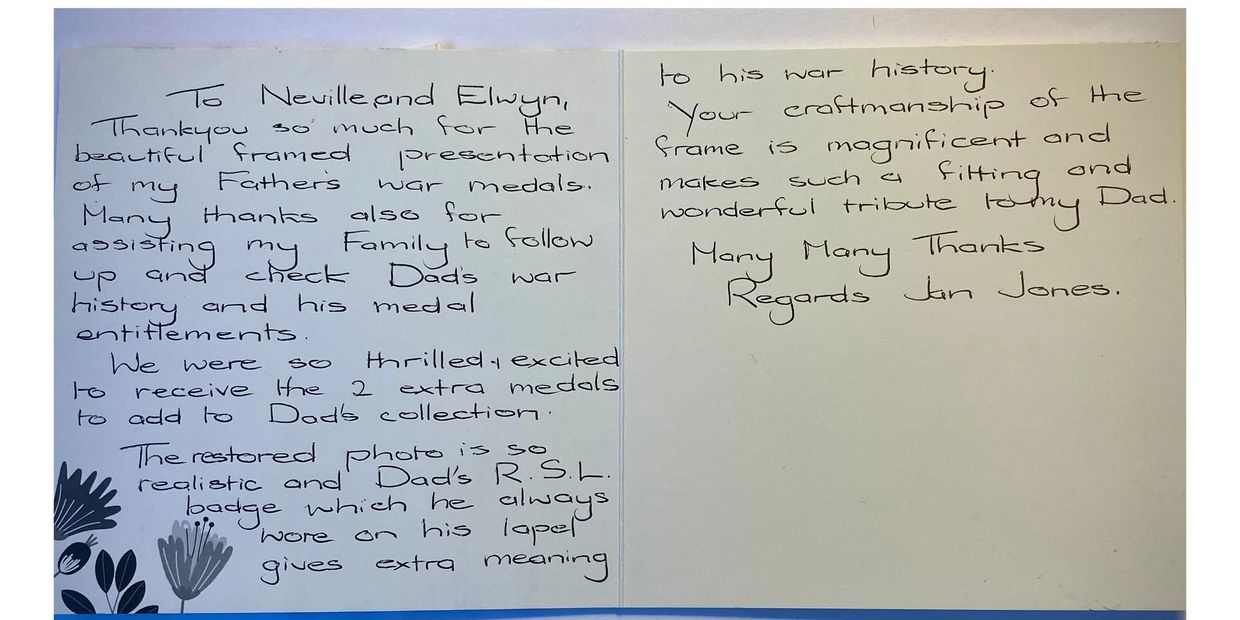 To Neville and Elwyn,
Thankyou so much for the
beautiful framed presentation
of my Father's war medals.
Many thanks also for
assisting my Family to follow
up and check Dad's war
history and his medal
entitlements.
We were so thrilled & excited
to receive the 2 extra medals
to add to Dad's collection.
The restored photo is so
realistic and Dad's R.S.L.
badge which he always
wore on his lapel
gives extra meaning
to his war history.
Your craftmanship of the
frame is magnificent and
makes such a fitting and
wonderful tribute to my Dad.
Many Many Thanks
Regards Jan Jones.